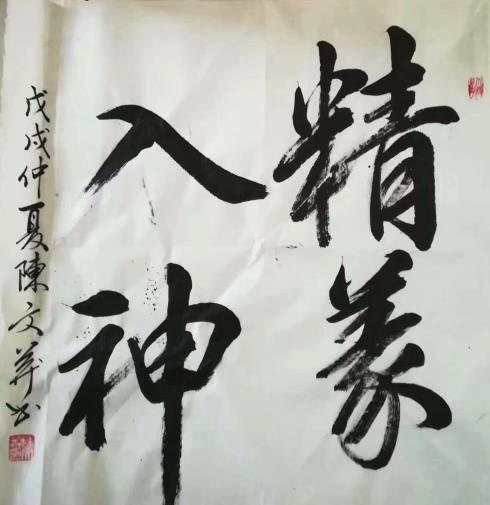 精義
入神
戊戌仲夏陳文书